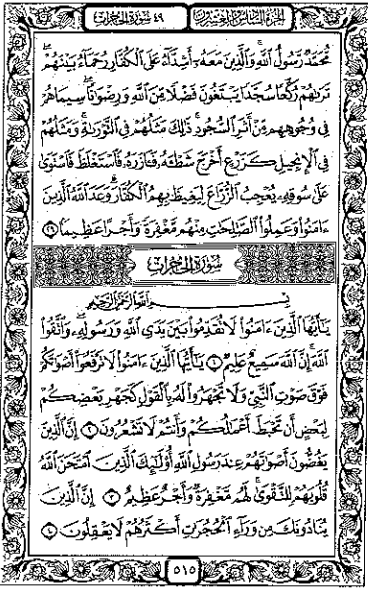 الجزء السادس والعشرون ٤٩ سورة الحجرات
مُّحَمَّدٌ رَّسُولُ ٱللَّهِ وَٱلَّذِينَ مَعَهُۥٓ أَشِدَّآءُ عَلَى ٱلْكُفَّارِ رُحَمَآءُ بَيْنَهُمْ
تَرَىٰهُمْ رُكَّعًا سُجَّدًا يَبْتَغُونَ فَضْلًا مِّنَ ٱللَّهِ وَرِضْوَٰنًا سِيمَاهُمْ
فِى وُجُوهِهِم مِّنْ أَثَرِ ٱلسُّجُودِ ذَٰلِكَ مَثَلُهُمْ فِى ٱلتَّوْرَىٰةِ وَمَثَلُهُمْ
فِى ٱلْإِنجِيلِ كَزَرْعٍ أَخْرَجَ شَطْـَٔهُۥ فَـَٔازَرَهُۥ فَٱسْتَغْلَظَ فَٱسْتَوَىٰ
عَلَىٰ سُوقِهِۦ يُعْجِبُ ٱلزُّرَّاعَ لِيَغِيظَ بِهِمُ ٱلْكُفَّارَ وَعَدَ ٱللَّهُ ٱلَّذِينَ
ءَامَنُوا۟ وَعَمِلُوا۟ ٱلصَّٰلِحَٰتِ مِنْهُم مَّغْفِرَةً وَأَجْرًا عَظِيمًا ٢٩
سورة الحجرات
بِسْمِ ٱللَّهِ ٱلرَّحْمَٰنِ ٱلرَّحِيمِ
يَٰٓأَيُّهَا ٱلَّذِينَ ءَامَنُوا۟ لَا تُقَدِّمُوا۟ بَيْنَ يَدَىِ ٱللَّهِ وَرَسُولِهِۦ وَٱتَّقُوا۟
ٱللَّهَ إِنَّ ٱللَّهَ سَمِيعٌ عَلِيمٌ ١ يَٰٓأَيُّهَا ٱلَّذِينَ ءَامَنُوا۟ لَا تَرْفَعُوٓا۟ أَصْوَٰتَكُمْ
فَوْقَ صَوْتِ ٱلنَّبِىِّ وَلَا تَجْهَرُوا۟ لَهُۥ بِٱلْقَوْلِ كَجَهْرِ بَعْضِكُمْ
لِبَعْضٍ أَن تَحْبَطَ أَعْمَٰلُكُمْ وَأَنتُمْ لَا تَشْعُرُونَ ٢ إِنَّ ٱلَّذِينَ
يَغُضُّونَ أَصْوَٰتَهُمْ عِندَ رَسُولِ ٱللَّهِ أُو۟لَٰٓئِكَ ٱلَّذِينَ ٱمْتَحَنَ ٱللَّهُ
قُلُوبَهُمْ لِلتَّقْوَىٰ لَهُم مَّغْفِرَةٌ وَأَجْرٌ عَظِيمٌ ٣ إِنَّ ٱلَّذِينَ
يُنَادُونَكَ مِن وَرَآءِ ٱلْحُجُرَٰتِ أَكْثَرُهُمْ لَا يَعْقِلُونَ ٤
٥١٥